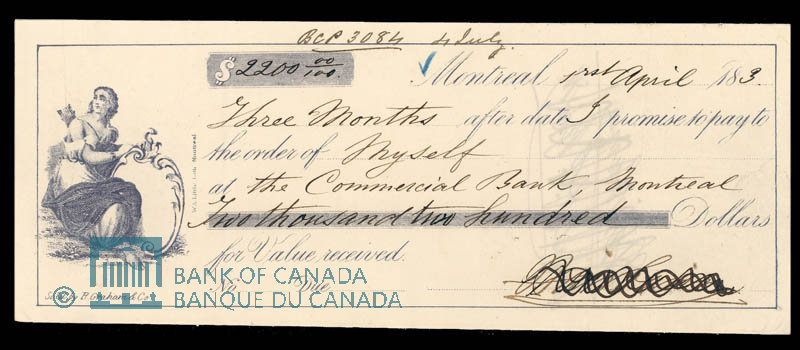 BCP 3084 4 July
$ 2200 00/100
Montreal 1rst April 183.
Three Months after date I promise to pay to
the order of Myself
at the Commercial Bank, Montreal
Two thousand two hundred Dollars
for Value received.
No Due
W.A. Little, Lith. Montreal
© BANK OF CANADA
BANQUE DU CANADA